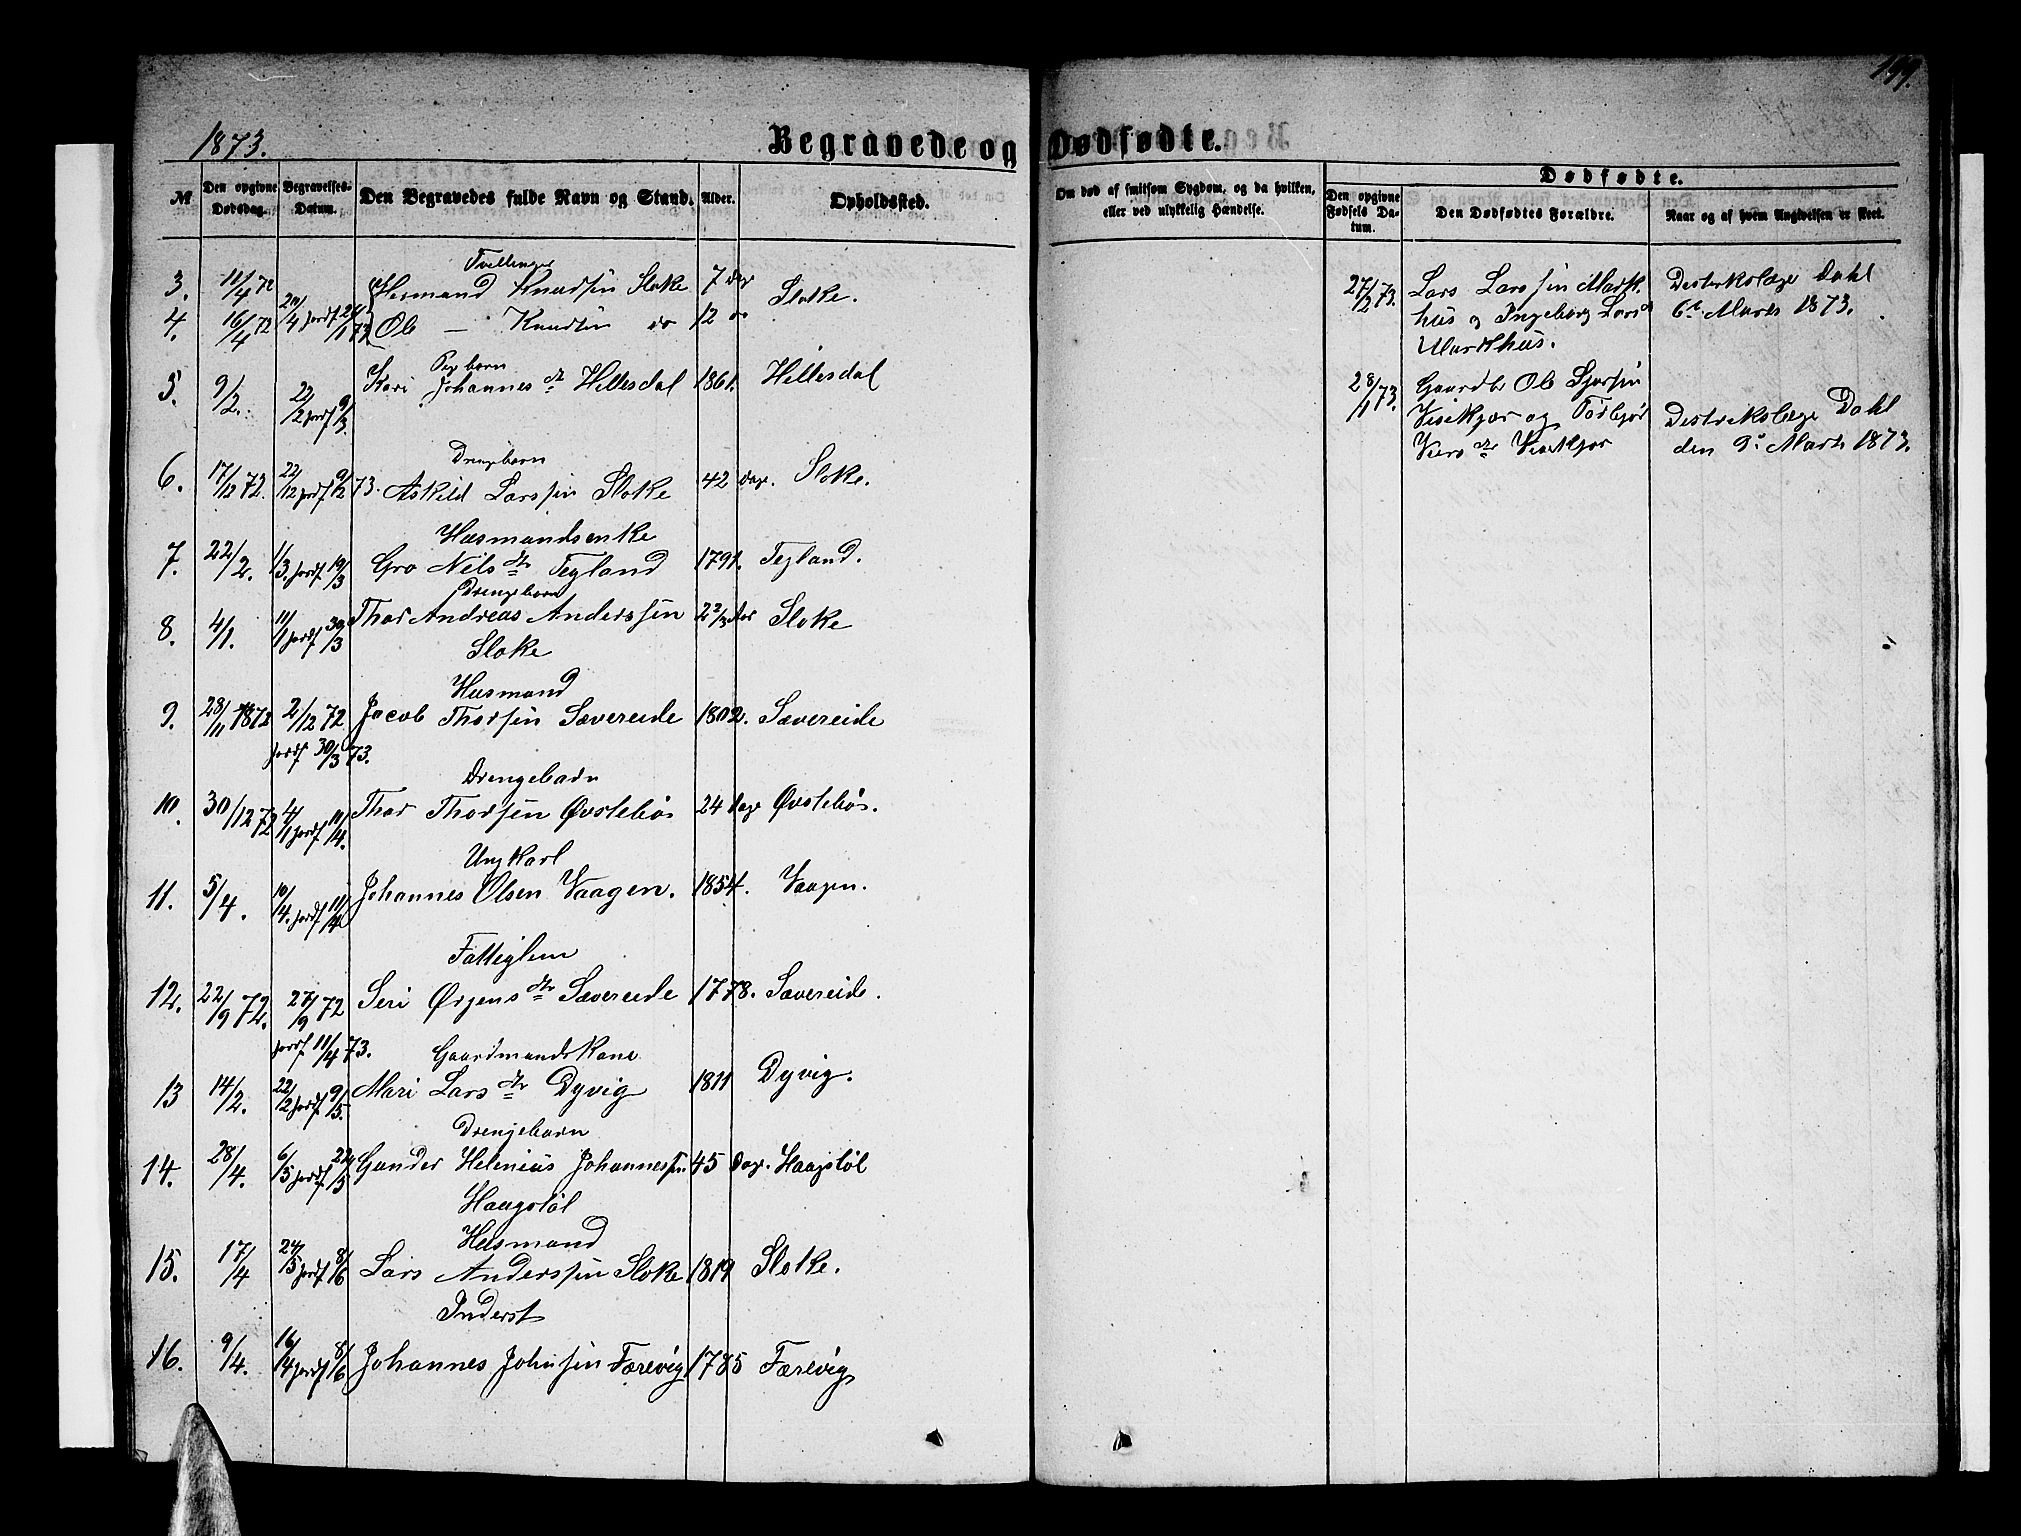 199.
1873.
Begravede og Dødfødte.
№ Den opgivne Dødsdag. Begravelses-Datum. Den Begravedes fulde Navn og Stand. Alder. Opholdssted.
Om død af smitsom Sygdom, og da hvilken, eller ved ulykkelig Hændelse.
Dødfødte.
Den opgivne Fødsels Datum. Den Dødfødtes Forældre. Naar og af hvem Angivelsen er skeet.
Tvellinger
3. 11/4 72 Knudsen Sloke 7 Dage Sloke.
4. 16/4 72 Ole — Knudsen do 12 do
Pigebarn
5. 9/2. 22/2 jordf 9/3. Kari Johannes dt Hillesdal 1861. Hillesdal
Drengebarn
6. 17/12 72. 22/12 jordf 9/2 73. Askild Larssen Sloke 42 Dage. Sloke.
Husmandsenke
7. 22/2. 1/3. jordf 19/3 Gro Nels dtr Tegland 1791. Tegland.
Drengebarn
8. 4/1. 11/1 jordf 30/3 Thor Andreas Anderssen 2 2/3 Aar Sloke
Sloke
Husmand
9. 28/11 1872 2/12 72 Jacob Thorsen Sævereide 1802. Sævereide
jordf 30/3 73.
Drengebarn
10. 30/12 72 4/1 jordf 11/4. Thor Thorsen Øvstebøs 24 Dage Øvstebøs.
Ungkarl
11. 5/4. 10/4. jordf 11/4 Johannes Olsen Vaagen. 1854. Vaagen.
Fattiglem
12. 22/9 72. 27/9 72 Seri Ørjens dtr Sævereide 1778. Sævereide.
jordf 11/4 73.
Gaardmandskone
13 14/2. 22/2 jordf 9/5. Mari Lars dtr Dyvig 1811 Dyvig.
Drengebarn
14. 28/4. 6/5 jordf 22/5 Gunder Helenius Johannessen 45 Dage. Haagstøl
Haagstøl
Husmand
15. 17/4 24/5 jordf 8/6 Lars Anderssen Sloke 1819 Sloke.
Inderst
16. 9/4. 16/4 jordf 8/6 Johannes Johnsen Færevig 1785 Færevig
27/2 73. Lars Larssen Markhus og Ingeborg Larsd Markhus. Destrikslæge Dahl
6te Marts 1873.
28/1 73. Gaardbr Ole Sjursen
og Torbjør
Destrikslæge Dahl
den 9de Marts 1873.